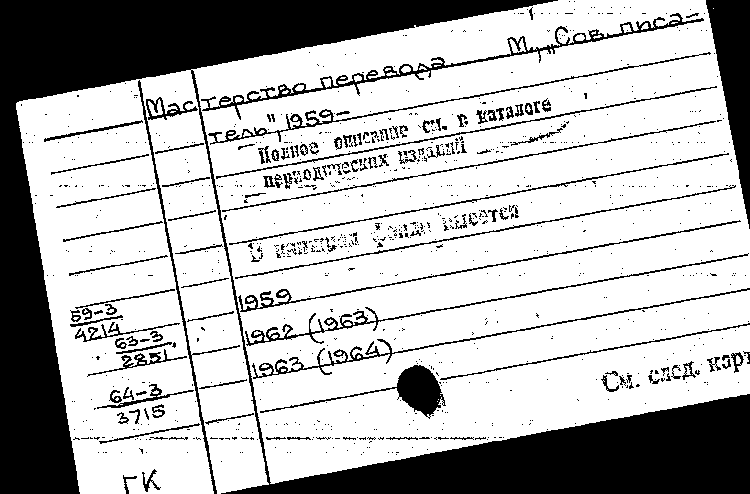 Мастерство перевода. М., „Сов. писа-
тель", 1959-
Полное описание см. в каталоге
периодических изданий
В книжном фонде имеется
59-3
4214
1959
63-3
2851
1962 (1963)
1963 (1964)
64-3
3715
См. след. карт
ГК